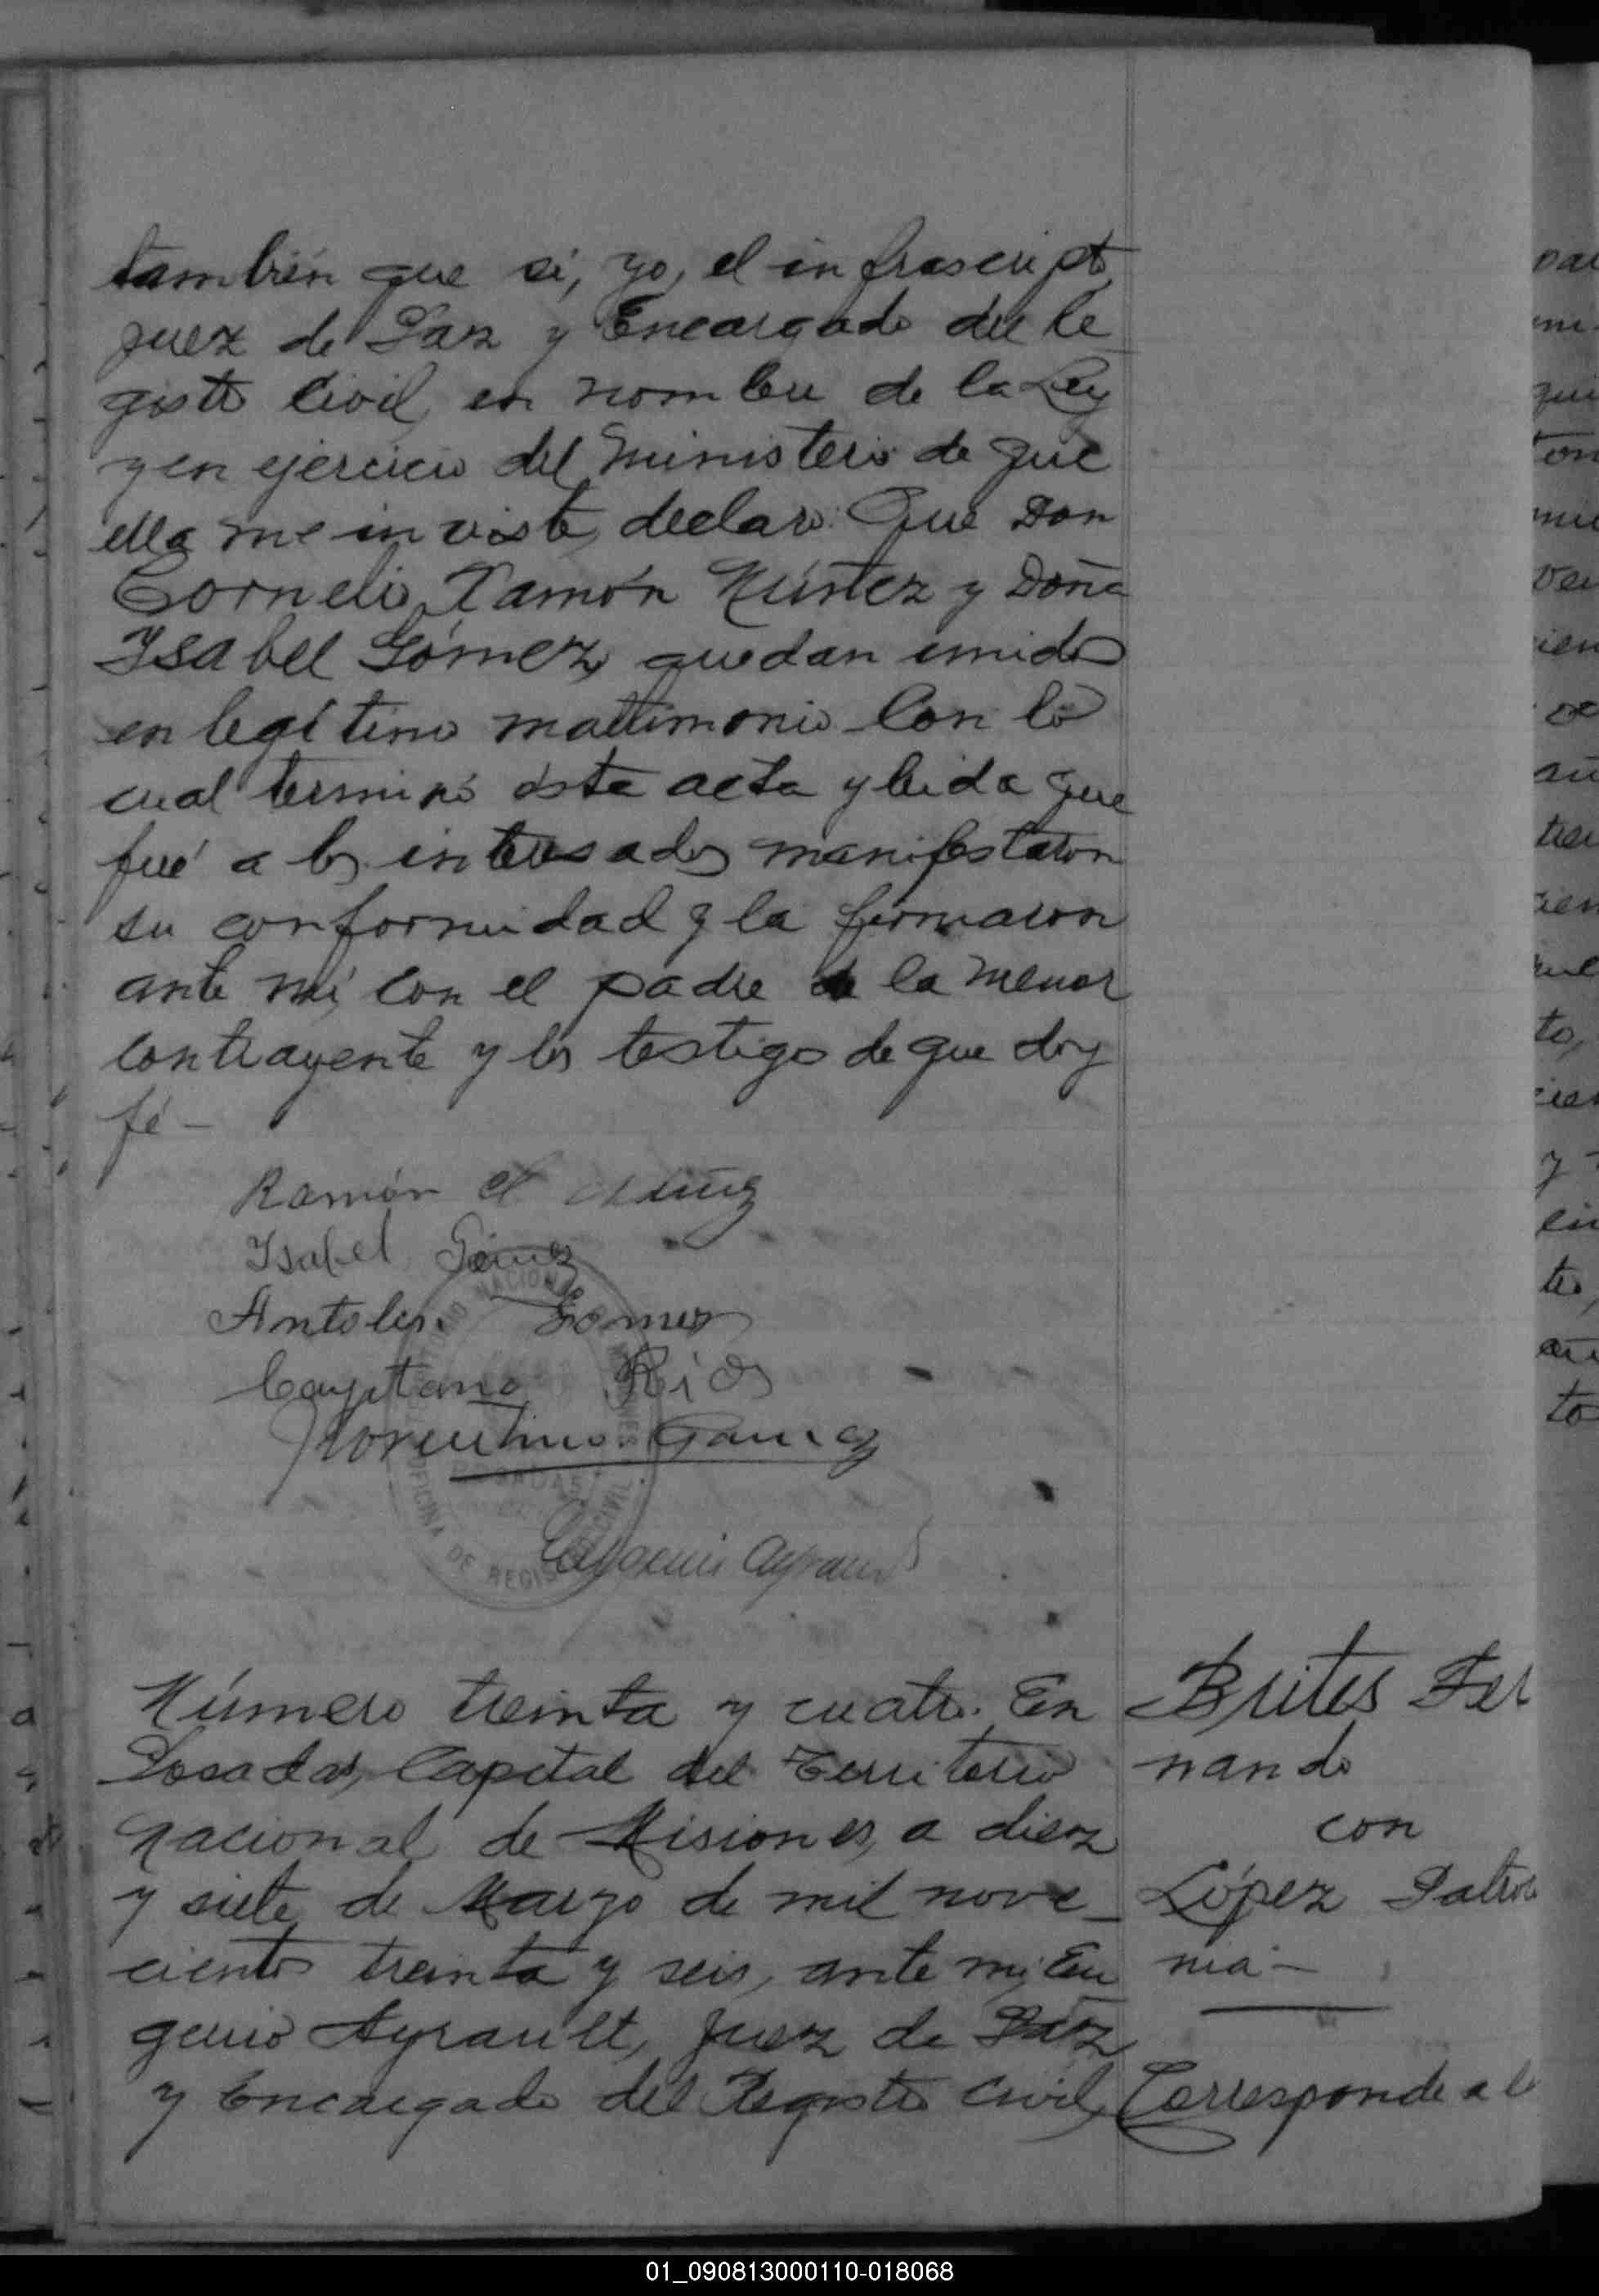 también que sí, yo, el infrascripto
Juez de Paz y Encargado del Re
gistro Civil, en nombre de la Ley
y en ejercicio del Ministerio de que
ella me inviste, declaro: Que Don
Cornelio Ramón Núñez y Doña
Isabel Gómez, quedan unidos
en legítimo matrimonio. Con lo
cual terminó ésta acta y leida que
fué a los interesados manifestaron
su conformidad y la firmaron
ante mí, con el padre de la menor
contrayente y los testigos de que doy
fé—
Ramón C Nuñez
Isabel Gómez
Antolin Gomez
Cayetano Rios
Florentino Gamez
TERRITORIO NACIONAL DE MISIONES
POSADAS
OFICINA DE REGISTRO CIVIL
Eugenio Ayrault
Número treinta y cuatro. En
Posadas, Capital del Territorio
Nacional de Misiones, a diez
y siete de Marzo de mil nove_
cientos treinta y seis, ante mí, Eu
genio Ayrault, Juez de Paz
y Encargado del Registro Civil,
Brites Fer
nando
con
López Patroci
nia—
Corresponde al
01_090813000110-018068